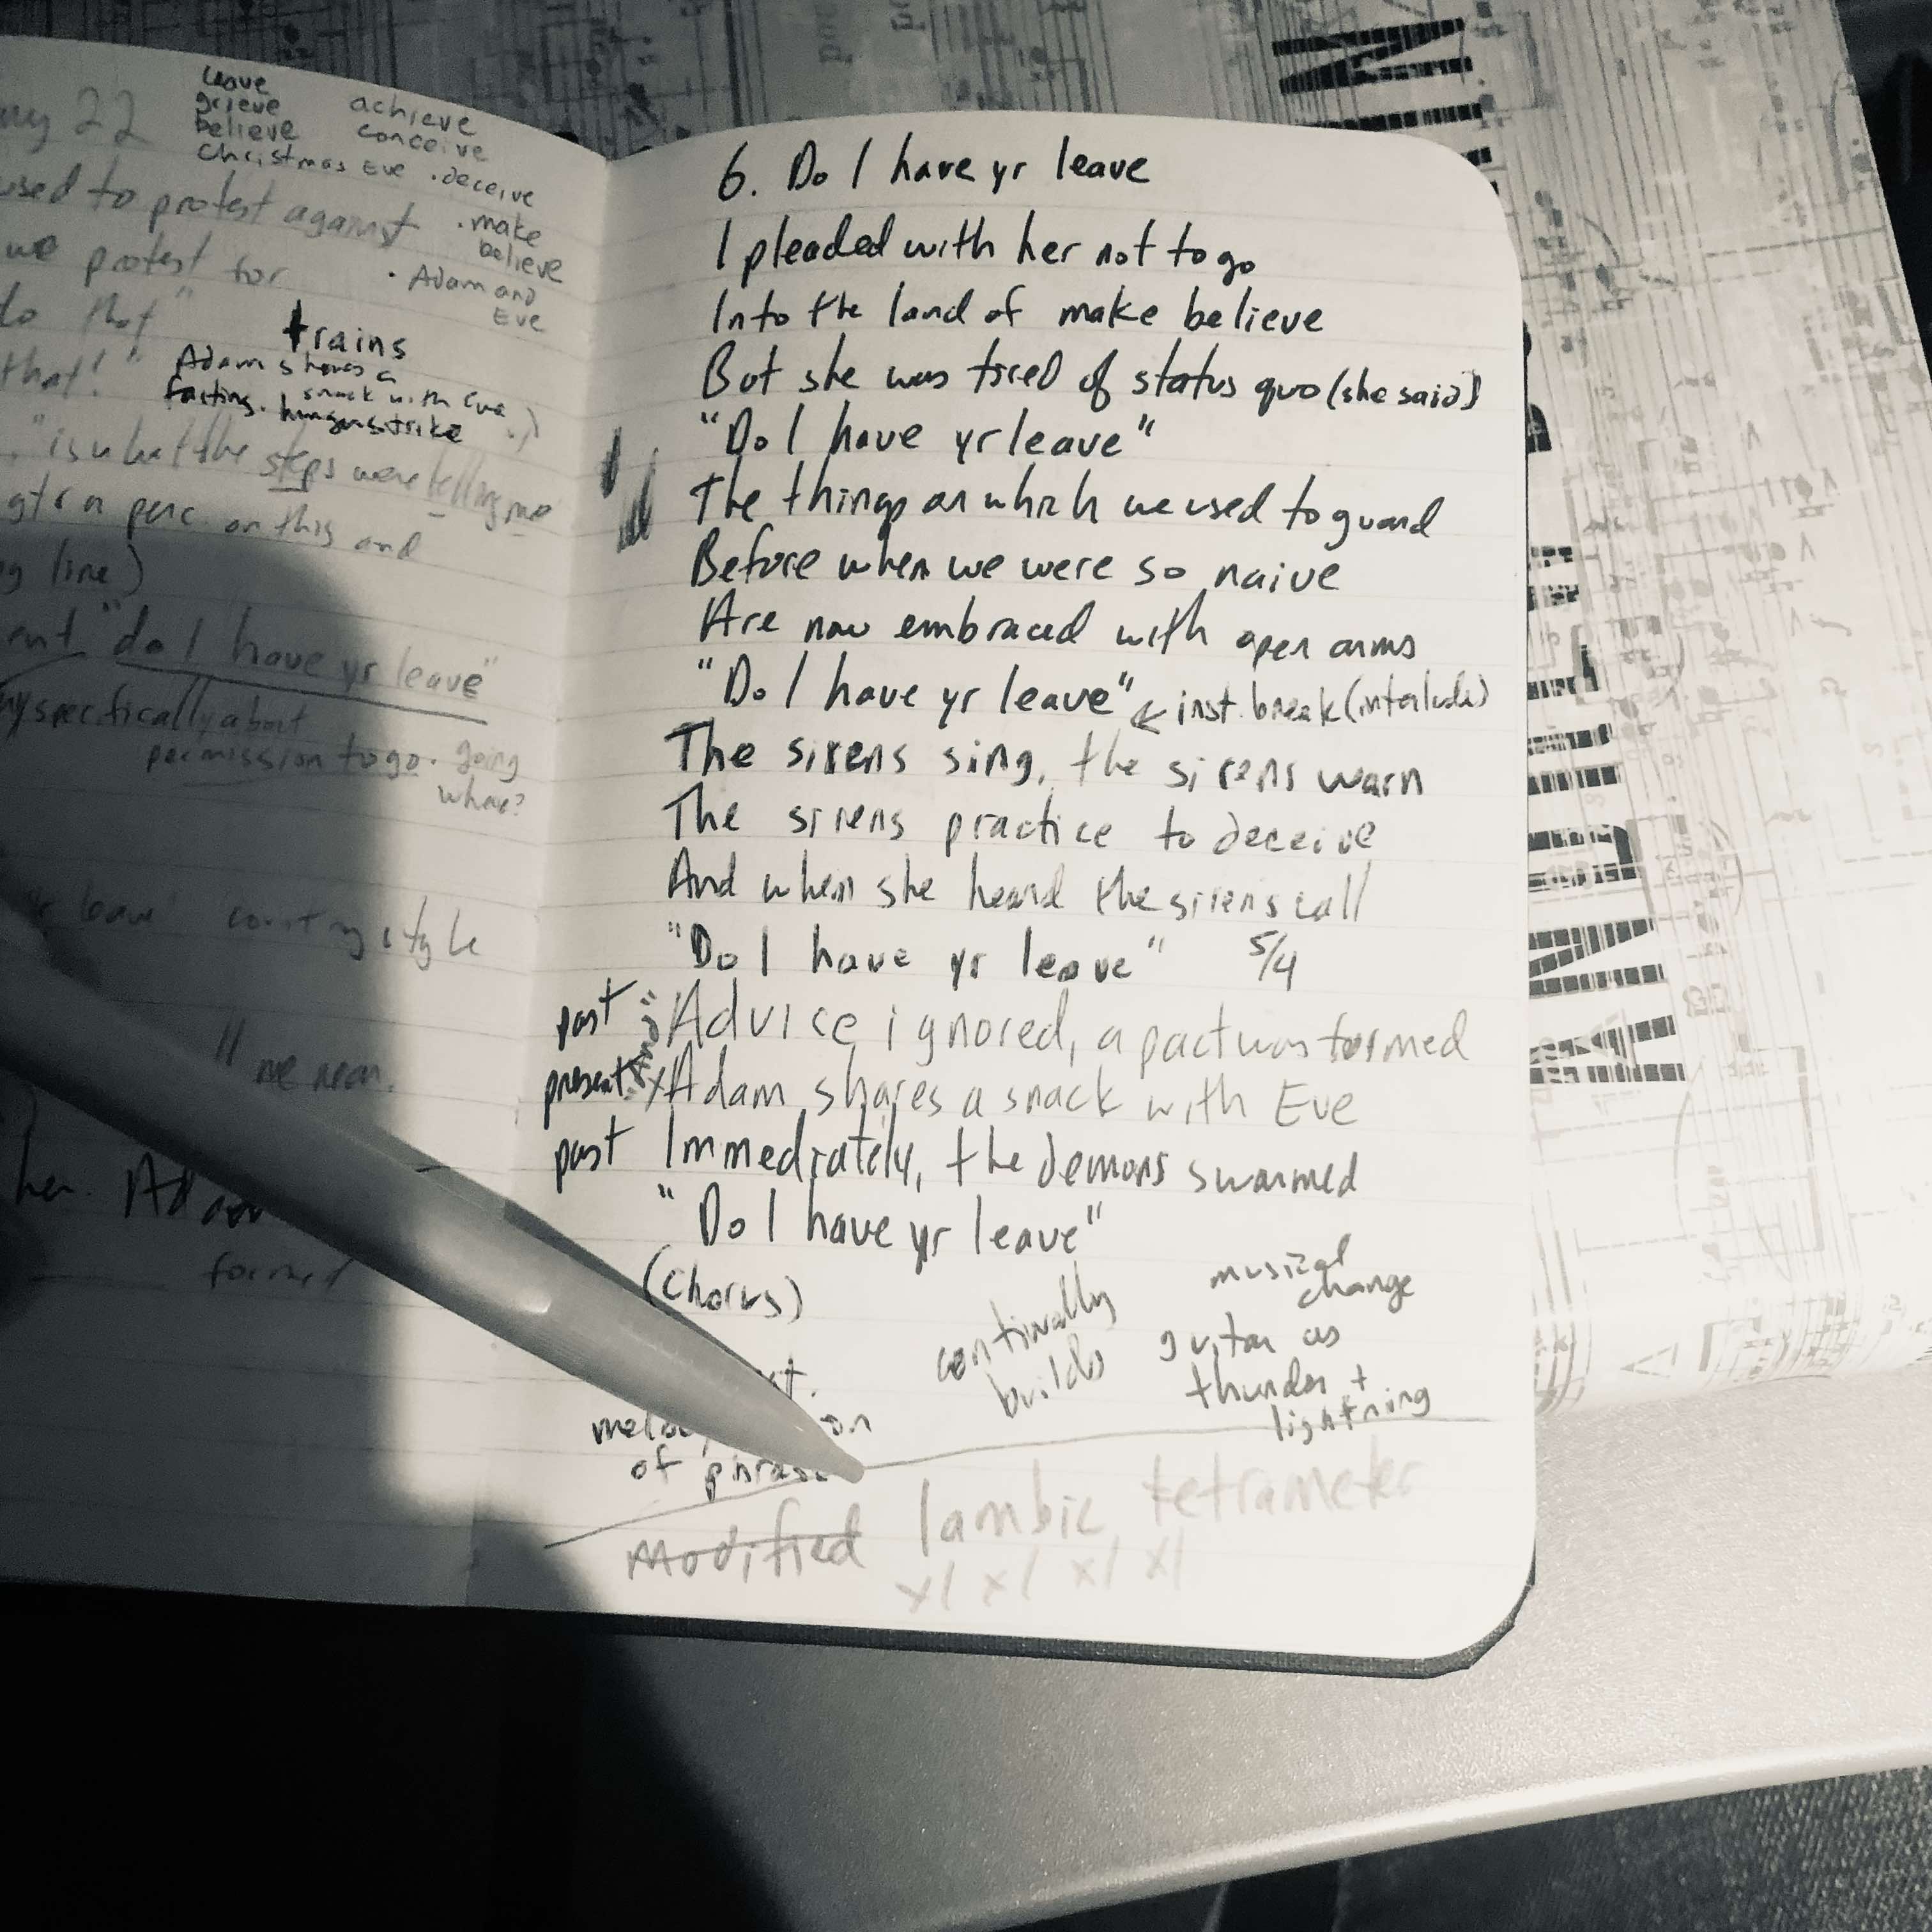 22
leave
grieve
believe
Christmas Eve
achieve
conceive
. deceive
. make
believe
. Adam and
Eve
used to protest against
we protest for
do that"
that!"
trains
Adam shares a
snack with Eve
fasting. hungerstrike
"is what the steps were telling me
gtr n perc. on this and
line)
"do I have yr leave"
specifically about
permission to go. going
where?
leave' country style
her. Adam
formed
6. Do I have yr leave
I pleaded with her not to go
Into the land of make believe
But she was tired of status quo (she said)
"Do I have yr leave"
The things on which we used to guard
Before when we were so naive
Are now embraced with open arms
"Do I have yr leave" ← inst. break (interlude)
The sirens sing, the sirens warn
The sirens practice to deceive
And when she heard the sirens call
"Do I have yr leave" 5/4
past "And" Advice ignored, a pact was formed
present "And" x Adam shares a snack with Eve
past Immediately, the demons swarmed
"Do I have yr leave"
(Chorus)
continually
builds
musical
change
guitar as
thunder +
lightning
of phrase
Modified Iambic tetrameter
x/ x/ x/ x/